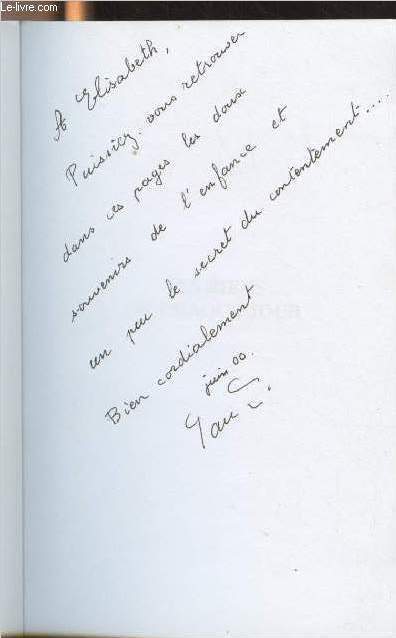 Le-livre.com
A Elisabeth,
Puissiez-vous retrouver
dans ces pages les doux
souvenirs de l'enfance et
un peu le secret du contentement....
Bien cordialement
juin 00.